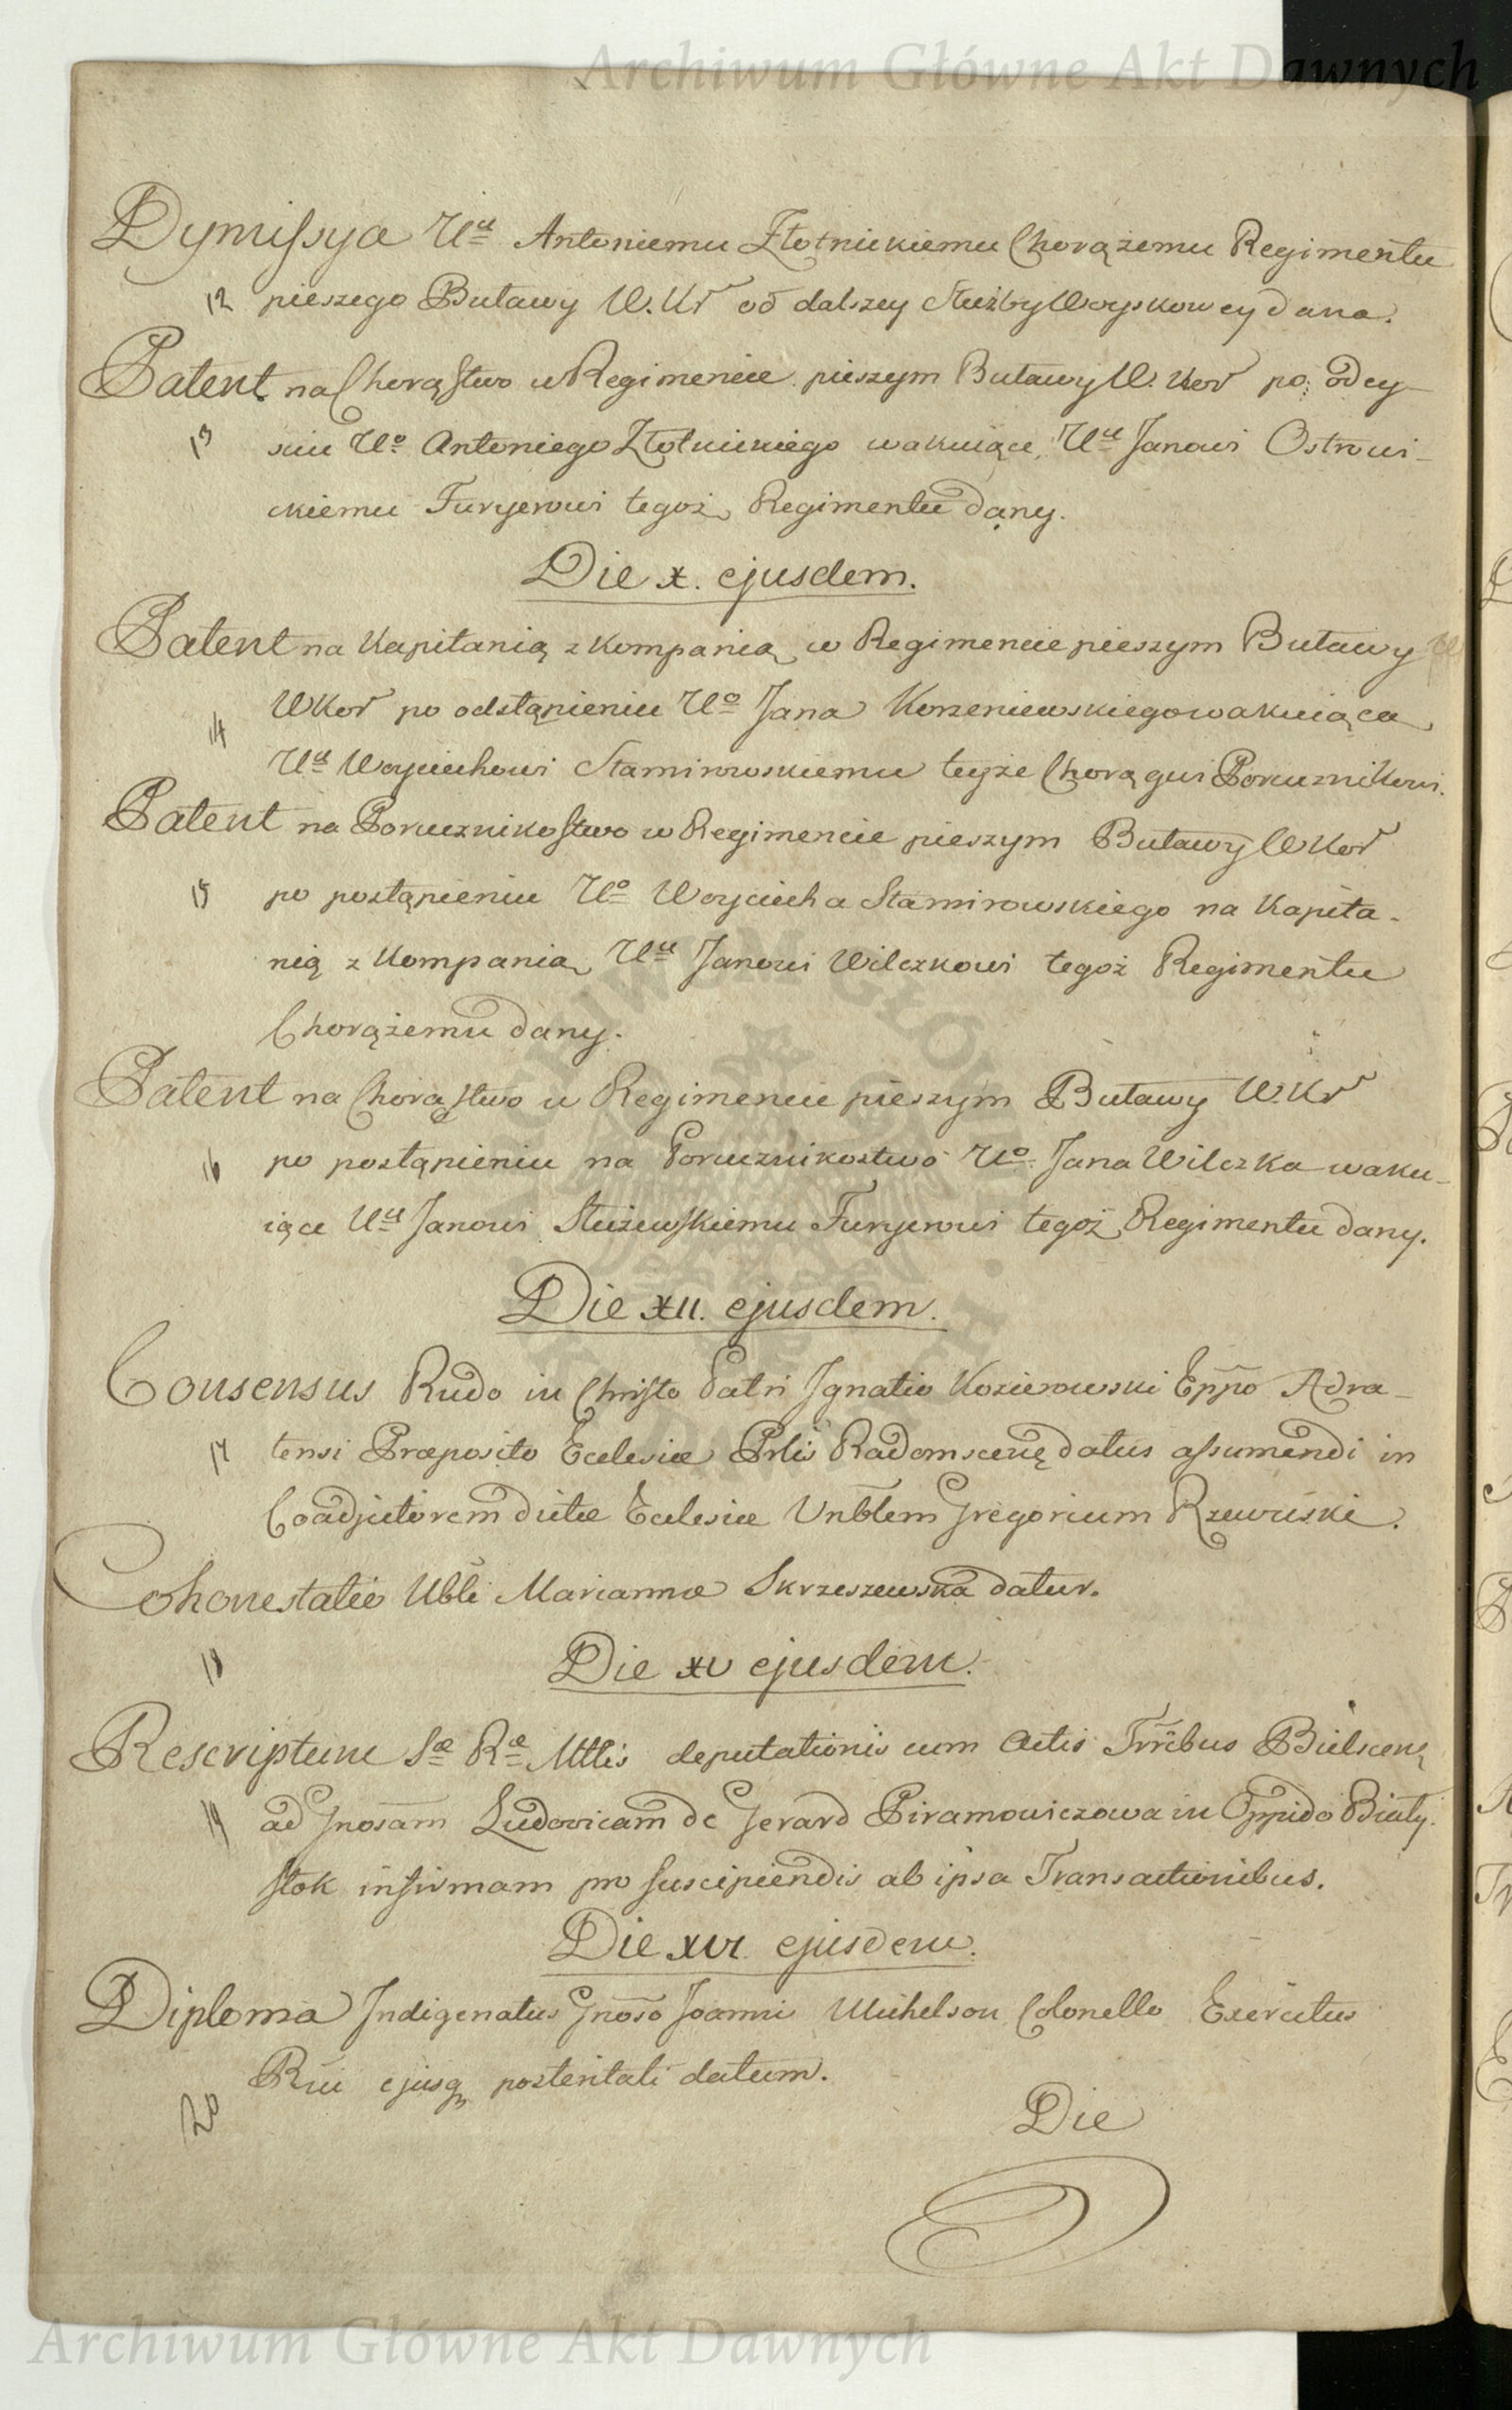 Archiwum Główne Akt Dawnych
Dymissya Uu Antoniemu Złotnickiemu Chorążemu Regimentu
12 pieszego Buławy W. Kr od dalszey służby Woyskowey dana.
Patent na Chorąstwo w Regimencie pieszym Buławy W. Kor po odey-
13 sciu Uo Antoniego Złotnickiego wakuiące, Uu Janowi Ostrowi-
ckiemu Furyerowi tegoż Regimentu dany.
Die X. ejusdem.
Patent na Kapitanią z Kompanią w Regimencie pieszym Buławy W
14 WKor po odstąpieniu Uo Jana Korzeniewskiego wakuiąca
Uu Woyciechowi Stamirowskiemu teyże Chorągwi Porucznikowi.
Patent na Porucznikostwo w Regimencie pieszym Buławy WKor
15 po postąpieniu Uo Woyciecha Stamirowskiego na Kapita-
nią z Kompanią Uu Janowi Wilczkowi tegoż Regimentu
Chorążemu dany.
Patent na Chorąstwo w Regimencie pieszym Buławy W.Kr
16 po postąpieniu na Porucznikostwo Uo Jana Wilczka waku-
iące Uu Janowi Służewskiemu Furyerowi tegoż Regimentu dany.
Die XII. ejusdem.
Consensus Rndo in Christo Patri Ignatio Kozierowski Eppo Adra-
17 tensi Præposito Ecclesiæ Prlis Radomscen datus assumendi in
Coadjutorem dictæ Ecclesiæ Vnblem Gregorium Rzewuski.
Cohonestatio Ubli Mariannæ Skrzeszewska datur.
18 Die XV ejusdem.
Rescriptum Sæ Ræ Mttis deputationis cum Actis Trribus Bielscen
19 ad Gnosam Ludovicam de Gerard Piramowiczowa in Oppido Biały-
stok infirmam pro suscipiendis ab ipsa Transactionibus.
Die XVI. ejusdem.
Diploma Indigenatus Gnoso Joanni Michelson Colonello Exercitus
20 Rui ejusq posteritati datum.
Die
Archiwum Główne Akt Dawnych